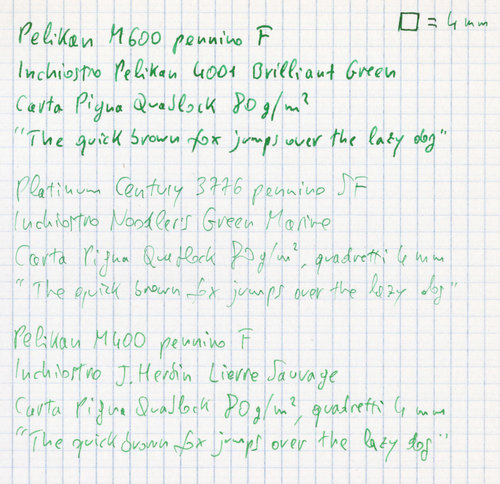 = 4 mm
Pelikan M600 pennino F
Inchiostro Pelikan 4001 Brilliant Green
Carta Pigna Quablock 80 g/m²
"The quick brown fox jumps over the lazy dog"
Platinum Century 3776 pennino SF
Inchiostro Noodler's Green Marine
Carta Pigna Quablock 80 g/m², quadretti 4 mm
"The quick brown fox jumps over the lazy dog"
Pelikan M400 pennino F
Inchiostro J. Herbin Lierre Sauvage
Carta Pigna Quablock 80 g/m², quadretti 4 mm
"The quick brown fox jumps over the lazy dog"